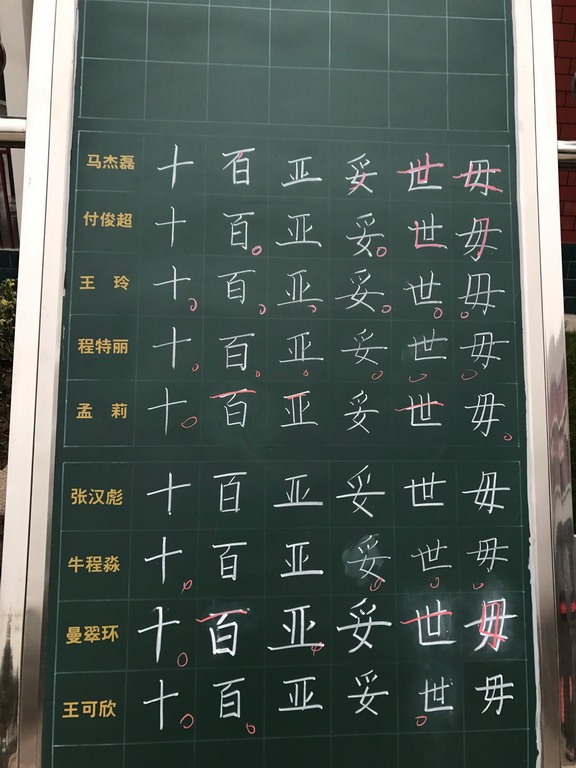 马杰磊 十 百 亚 妥 世 毋
付俊超 十 百 亚 妥 世 毋
王 玲 十 百 亚 妥 世 毋
程特丽 十 百 亚 妥 世 毋
孟 莉 十 百 亚 妥 世 毋
张汉彪 十 百 亚 妥 世 毋
牛程淼 十 百 亚 妥 世 毋
曼翠环 十 百 亚 妥 世 毋
王可欣 十 百 亚 妥 世 毋